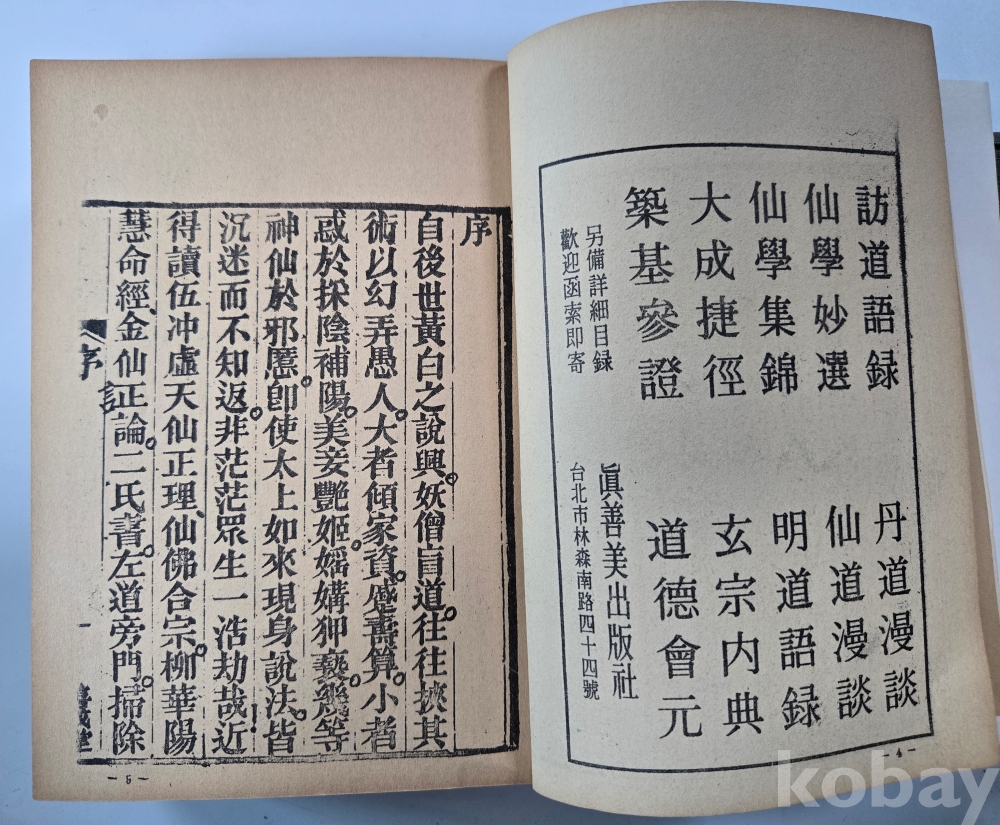 訪道語録
丹道漫談
仙學妙選
仙道漫談
仙學集錦
明道語録
大成捷徑
玄宗内典
築基參證
道德會元
另備詳細目録
歡迎函索即寄
眞善美出版社
台北市林森南路四十四號
— 4 —
序
自後世黃白之說興。妖僧盲道。往往挾其
術以幻弄愚人。大者傾家資。蹙壽算。小者
惑於採陰補陽。美妾艷姬。婬媾狎褻。幾等
神仙於邪慝。卽使太上如來現身說法。皆
沉迷而不知返。非茫茫眾生一浩劫哉！近
得讀伍冲虛天仙正理、仙佛合宗。柳華陽
慧命經、金仙正論。二氏書。左道旁門。掃除
序
一
— 5 —
kobay